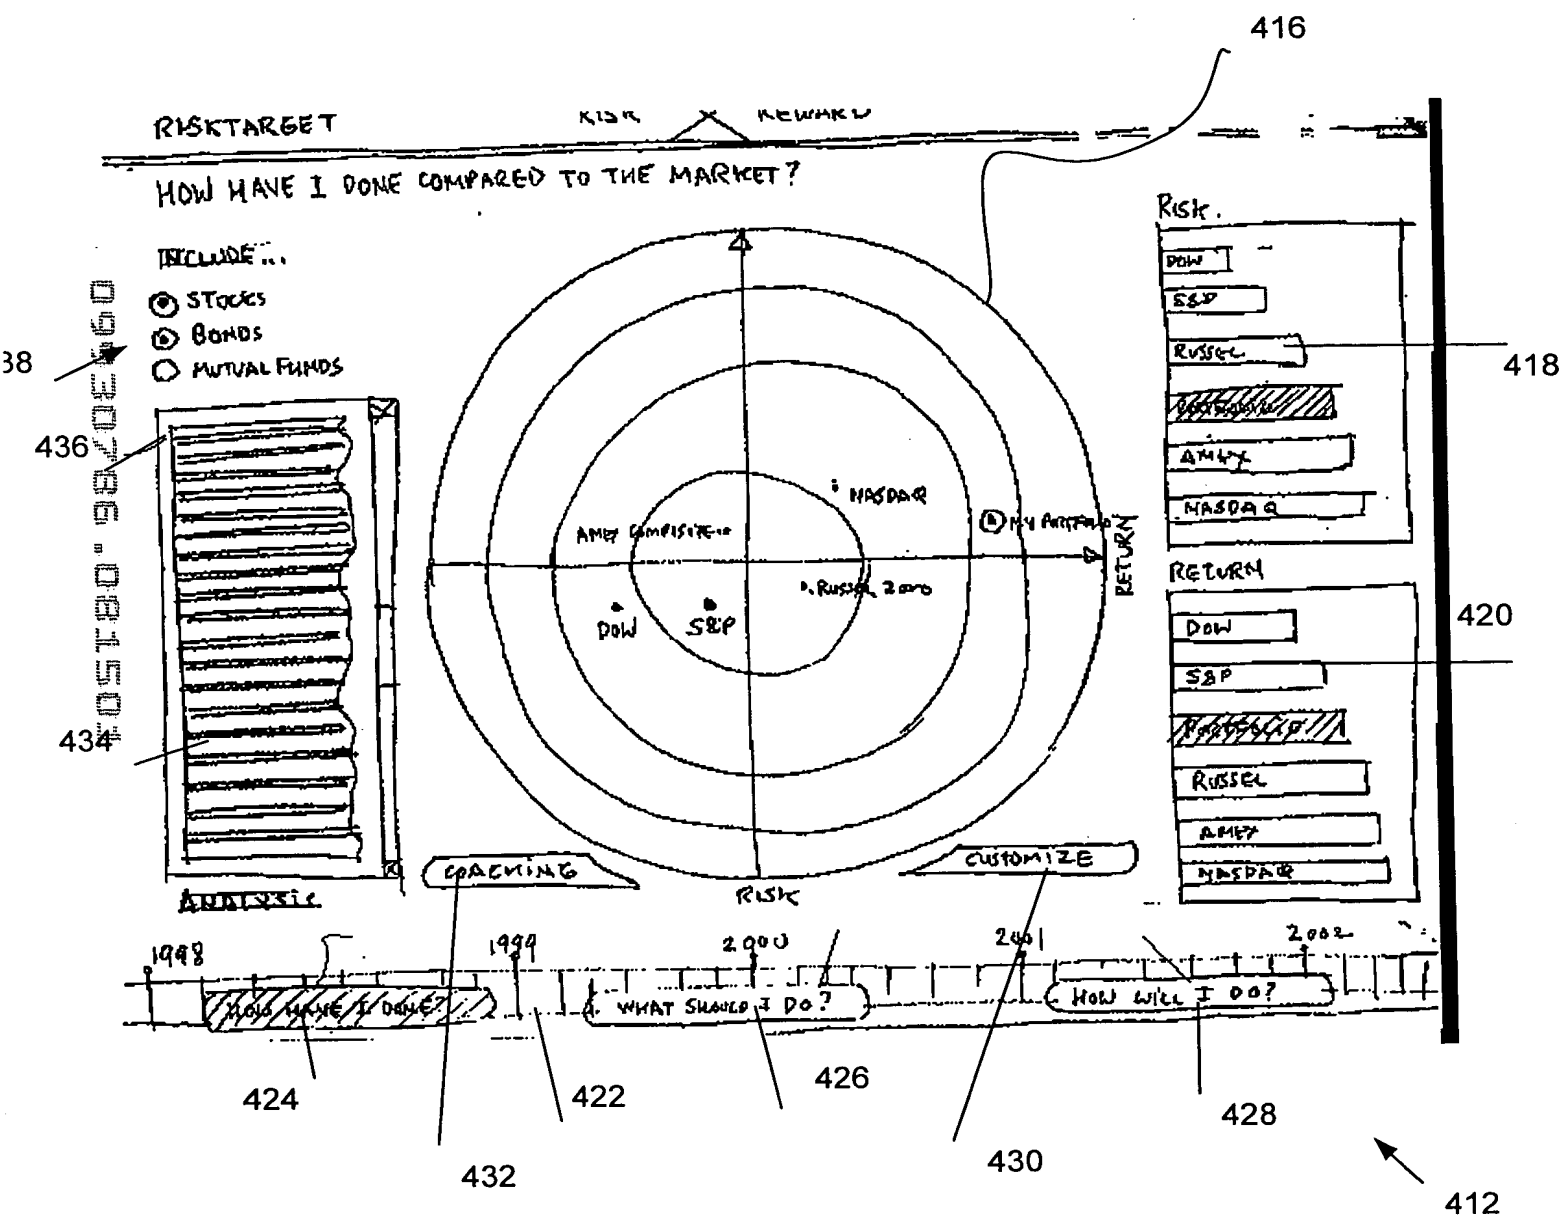 416
RISKTARGET
RISK REWARD
HOW HAVE I DONE COMPARED TO THE MARKET?
INCLUDE...
STOCKS
BONDS
MUTUAL FUNDS
38
436
434
09930786.081501
ANALYSIS
NASDAQ
MY PORTFOLIO
AMEX COMPISITE
RUSSEL 2000
DOW
S&P
RETURN
RISK
COACHING
CUSTOMIZE
RISK.
DOW
S&P
RUSSEL
PORTFOLIO
AMEX
NASDAQ
418
RETURN
420
DOW
S&P
PORTFOLIO
RUSSEL
AMEX
NASDAQ
1998 1999 2000 2001 2002
HOW HAVE I DONE?
WHAT SHOULD I DO?
HOW WILL I DO?
424
422
426
428
432
430
412